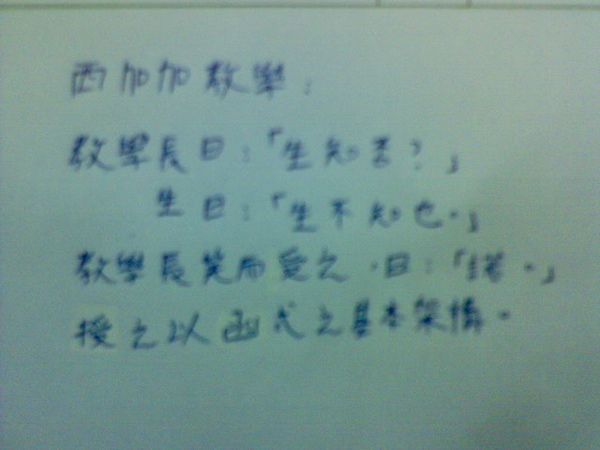 西加加教學：
教學長曰：「生知否？」
生曰：「生不知也。」
教學長笑而愛之，曰：「諾。」
授之以函式之基本架構。